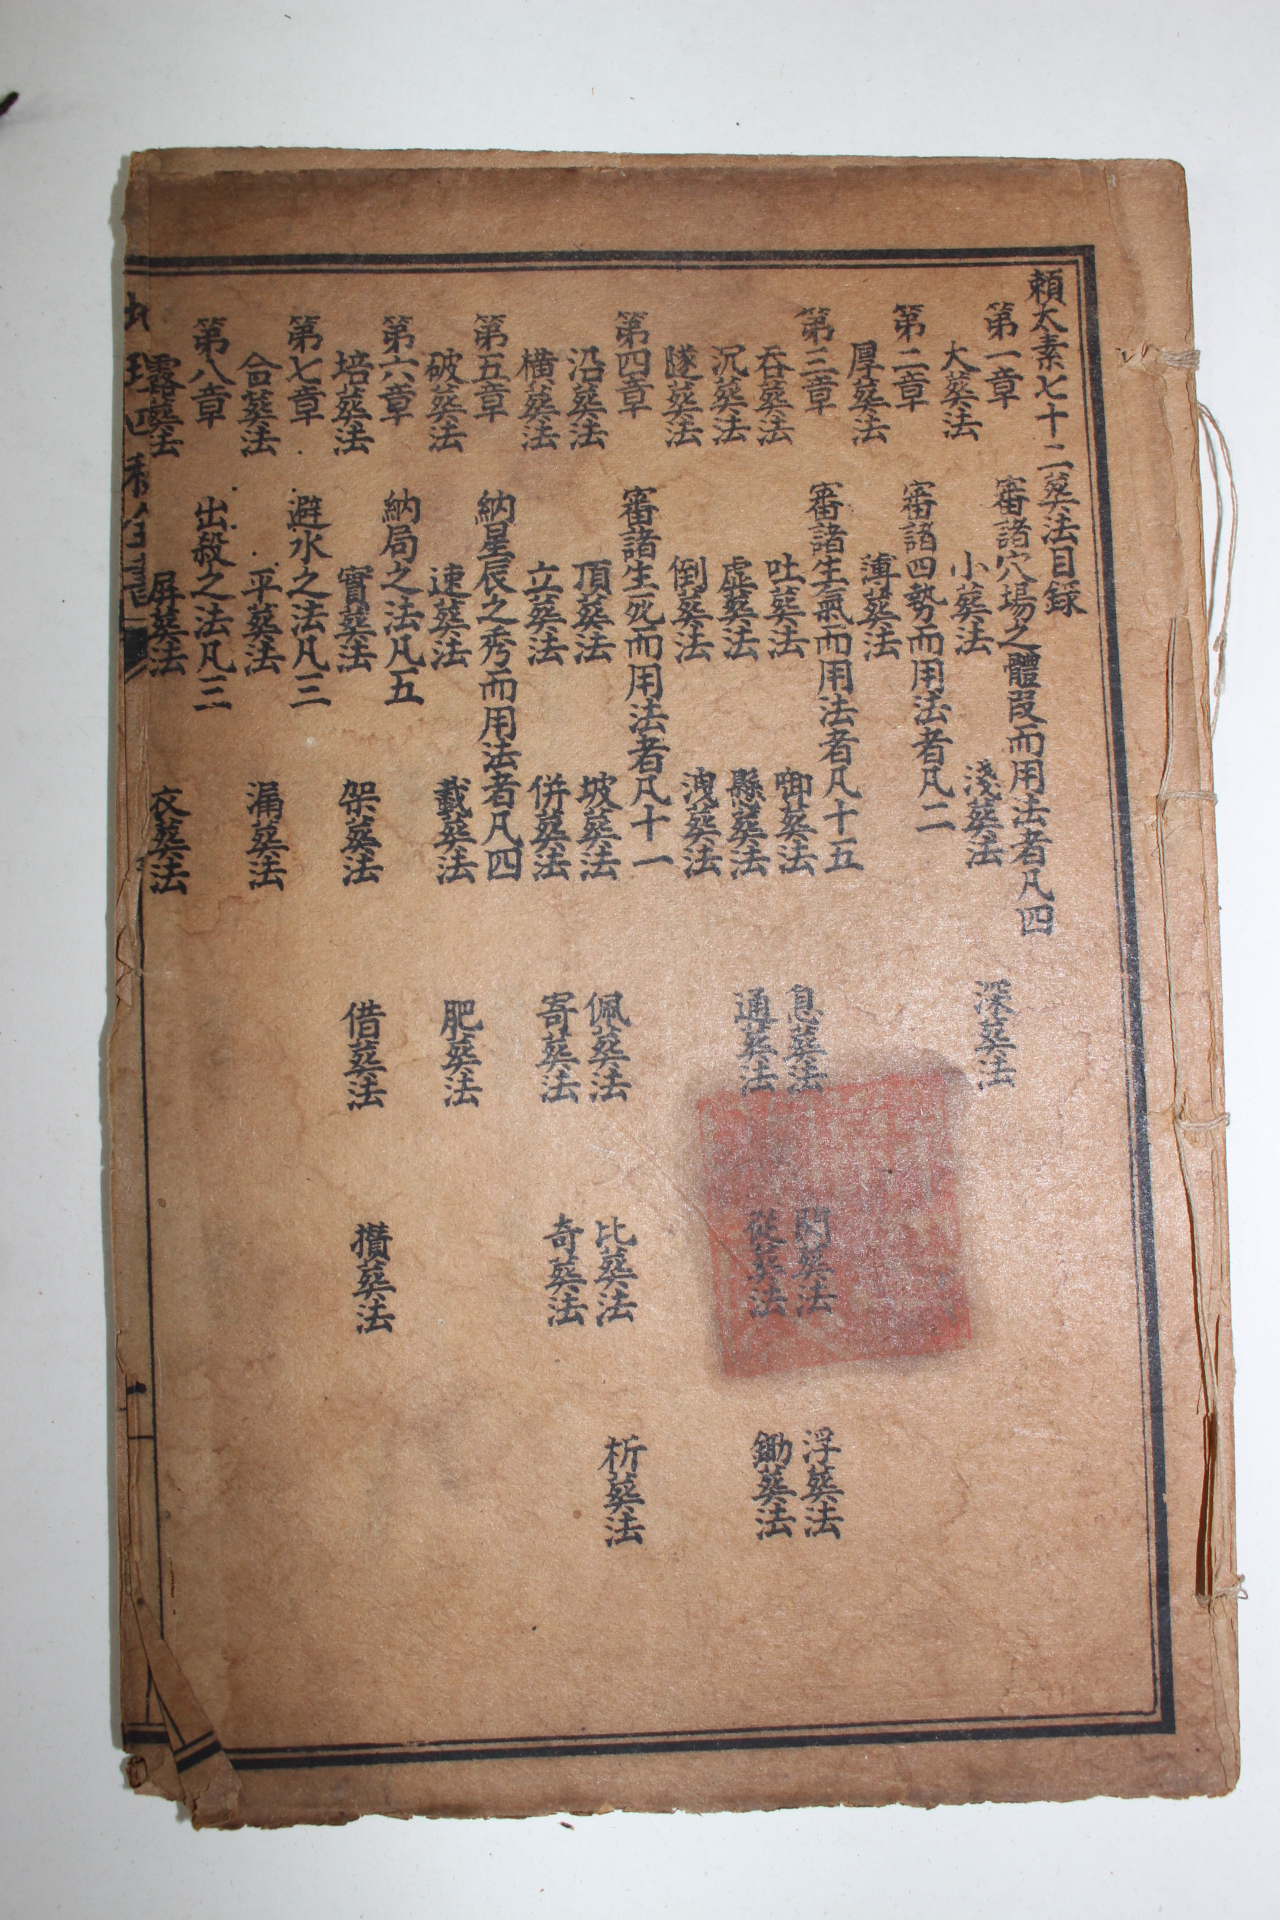 賴太素七十二葬法目錄
第一章 審諸穴場之體段而用法者凡四
大葬法 小葬法 淺葬法 深葬法
第二章 審諸四勢而用法者凡二
厚葬法 薄葬法
第三章 審諸生氣而用法者凡十五
吞葬法 吐葬法 啣葬法 息葬法 葬法 浮葬法
沉葬法 虛葬法 懸葬法 通葬法 從葬法 鋤葬法
隧葬法 倒葬法 洩葬法
第四章 審諸生死而用法者凡十一
沿葬法 頂葬法 坡葬法 佩葬法 比葬法 析葬法
橫葬法 立葬法 併葬法 寄葬法 奇葬法
第五章 納星辰之秀而用法者凡四
破葬法 速葬法 載葬法 肥葬法
第六章 納局之法凡五
培葬法 實葬法 架葬法 借葬法 攢葬法
第七章 避水之法凡三
合葬法 平葬法 漏葬法
第八章 出殺之法凡三
露葬法 屏葬法 衣葬法